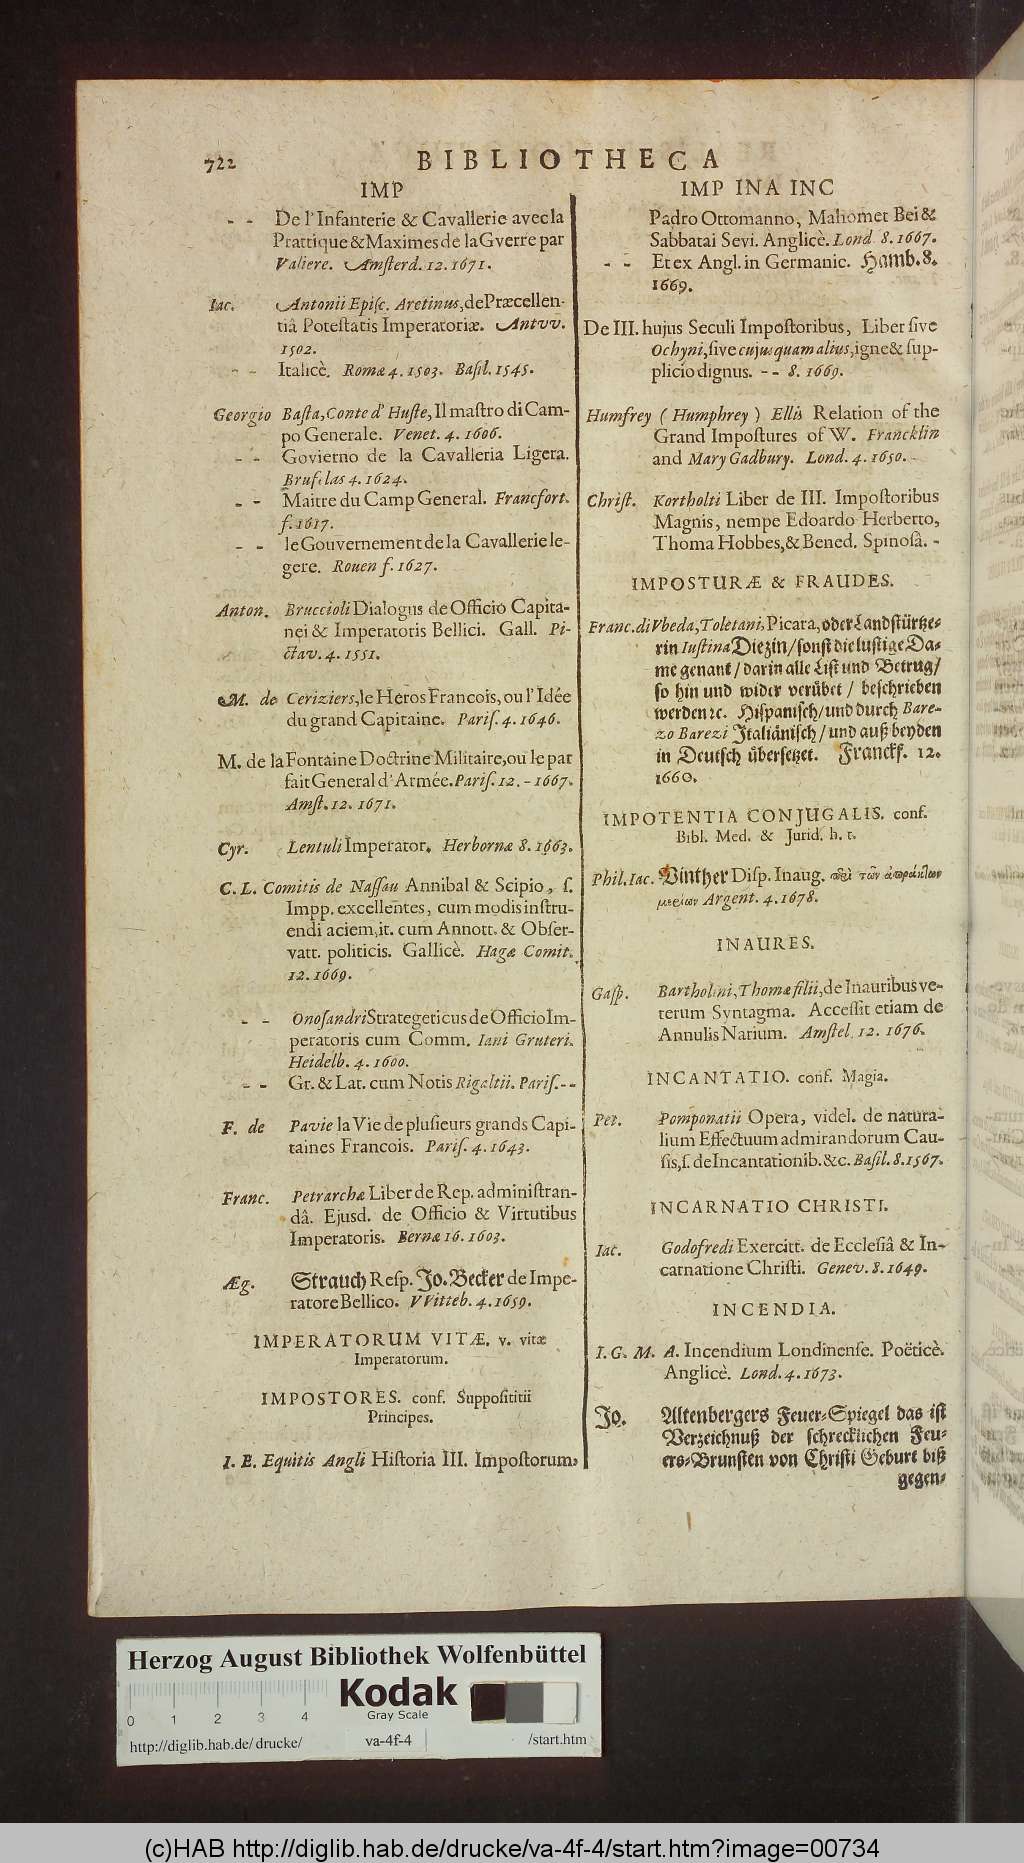 722
BIBLIOTHECA
IMP
- - De l'Infanterie & Cavallerie avec la
Prattique & Maximes de la Gverre par
Valiere. Amsterd. 12. 1671.
Iac. Antonii Episc. Aretinus, de Præcellen-
tiâ Potestatis Imperatoriæ. Antvv.
1502.
- - Italicè. Romæ 4. 1503. Basil. 1545.
Georgio Basta, Conte d' Huste, Il mastro di Cam-
po Generale. Venet. 4. 1606.
- - Govierno de la Cavalleria Ligera.
Bruselas 4. 1624.
- - Maitre du Camp General. Francfort.
f. 1617.
- - le Gouvernement de la Cavallerie le-
gere. Rouen f. 1627.
Anton. Bruccioli Dialogus de Officio Capita-
nei & Imperatoris Bellici. Gall. Pi-
ctav. 4. 1551.
M. de Ceriziers, le Heros Francois, ou l'Idée
du grand Capitaine. Paris. 4. 1646.
M. de la Fontaine Doctrine Militaire, ou le par
fait General d'Armée. Paris. 12. - 1667.
Amst. 12. 1671.
Cyr. Lentuli Imperator. Herbornæ 8. 1663.
C. L. Comitis de Nassau Annibal & Scipio, s.
Impp. excellentes, cum modis instru-
endi aciem, it. cum Annott. & Obser-
vatt. politicis. Gallicè. Hagæ Comit.
12. 1669.
- - Onosandri Strategeticus de Officio Im-
peratoris cum Comm. Iani Gruteri.
Heidelb. 4. 1600.
- - Gr. & Lat. cum Notis Rigaltii. Paris. - -
F. de Pavie la Vie de plusieurs grands Capi-
taines Francois. Paris. 4. 1643.
Franc. Petrarchæ Liber de Rep. administran-
dâ. Ejusd. de Officio & Virtutibus
Imperatoris. Bernæ 16. 1603.
Æg. Strauch Resp. Jo. Becker de Impe-
ratore Bellico. VVitteb. 4. 1659.
IMPERATORUM VITÆ. v. vitæ
Imperatorum.
IMPOSTORES. conf. Supposititii
Principes.
I. E. Equitis Angli Historia III. Impostorum,
IMP INA INC
Padro Ottomanno, Mahomet Bei &
Sabbatai Sevi. Anglicè. Lond. 8. 1667.
- - Et ex Angl. in Germanic. Hamb. 8.
1669.
De III. hujus Seculi Impostoribus, Liber sive
Ochyni, sive cujusquam alius, igne & sup-
plicio dignus. - - 8. 1669.
Humfrey (Humphrey) Ellis Relation of the
Grand Impostures of W. Francklin
and Mary Gadbury. Lond. 4. 1650. -
Christ. Kortholti Liber de III. Impostoribus
Magnis, nempe Edoardo Herberto,
Thoma Hobbes, & Bened. Spinosâ. -
IMPOSTURÆ & FRAUDES.
Franc. di Vbeda, Toletani, Picara, oder Landstürtze-
rin Iustina Diezin / sonst die lustige Da-
me genant / darin alle List und Betrug /
so hin und wider verübet / beschrieben
werden ꝛc. Hispanisch / und durch Bare-
zo Barezi Italiänisch / und auß beyden
in Deutsch übersetzet. Franckf. 12.
1660.
IMPOTENTIA CONJUGALIS. conf.
Bibl. Med. & Jurid. h. t.
Phil. Iac. Vinther Disp. Inaug. περὶ τῶν ἀπράκτων
Argent. 4. 1678.
INAURES.
Gasp. Bartholini, Thomæ filii, de Inauribus ve-
terum Syntagma. Accessit etiam de
Annulis Narium. Amstel. 12. 1676.
INCANTATIO. conf. Magia.
Pet. Pomponatii Opera, videl. de natura-
lium Effectuum admirandorum Cau-
sis, s. de Incantationib. &c. Basil. 8. 1567.
INCARNATIO CHRISTI.
Iac. Godofredi Exercitt. de Ecclesiâ & In-
carnatione Christi. Genev. 8. 1649.
INCENDIA.
I. G. M. A. Incendium Londinense. Poëticè.
Anglicè. Lond. 4. 1673.
Jo. Altenbergers Feuer-Spiegel das ist
Verzeichnuß der schrecklichen Feu-
ers-Brunsten von Christi Geburt biß
gegen-
Herzog August Bibliothek Wolfenbüttel
Kodak
Gray Scale
0 1 2 3 4
http://diglib.hab.de/drucke/ va-4f-4 /start.htm
(c)HAB http://diglib.hab.de/drucke/va-4f-4/start.htm?image=00734